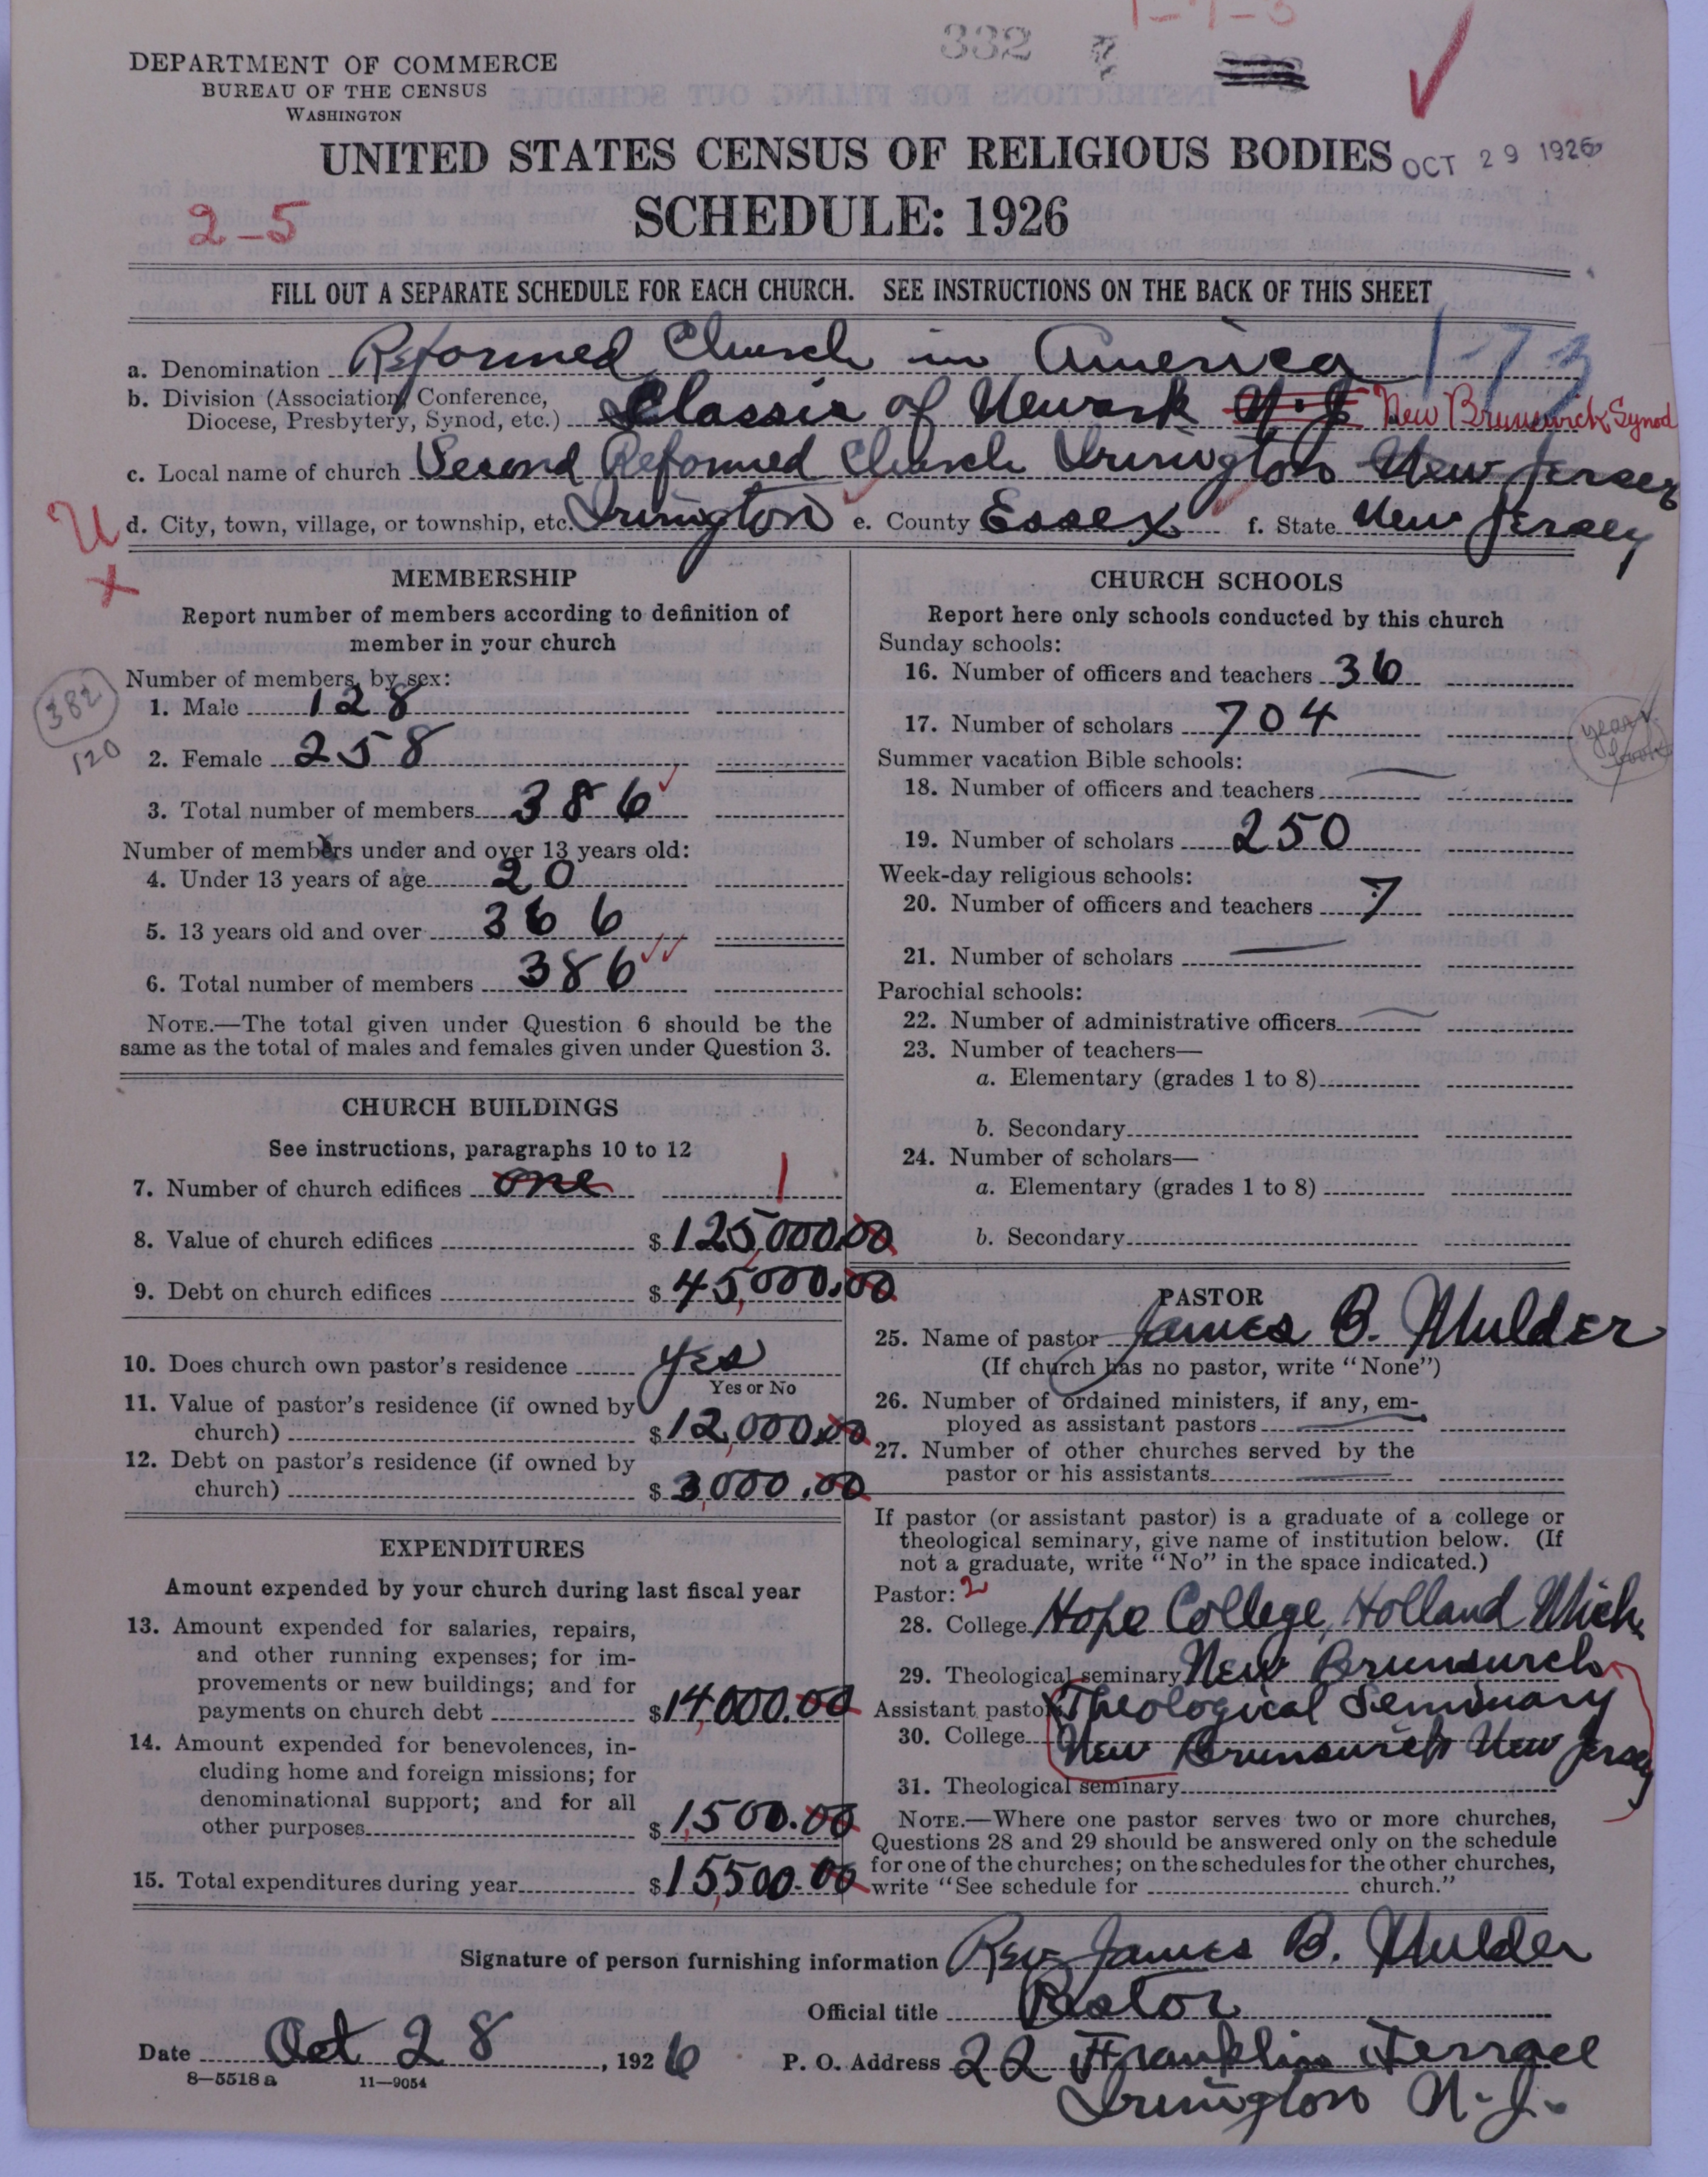 332
DEPARTMENT OF COMMERCE
BUREAU OF THE CENSUS
WASHINGTON
UNITED STATES CENSUS OF RELIGIOUS BODIES
OCT 29 1926
2-5
SCHEDULE: 1926
FILL OUT A SEPARATE SCHEDULE FOR EACH CHURCH. SEE INSTRUCTIONS ON THE BACK OF THIS SHEET
1-73
a. Denomination Reformed Church in America
b. Division (Association, Conference, Diocese, Presbytery, Synod, etc.) Classis of Newark N.J. New Brunswick Synod
c. Local name of church Second Reformed Church Irvington New Jersey
d. City, town, village, or township, etc. Irvington e. County Essex f. State New Jersey
U
x
MEMBERSHIP
Report number of members according to definition of
member in your church
Number of members, by sex:
382
120
1. Male 128
2. Female 258
3. Total number of members 386
Number of members under and over 13 years old:
4. Under 13 years of age 20
5. 13 years old and over 366
6. Total number of members 386
NOTE.—The total given under Question 6 should be the
same as the total of males and females given under Question 3.
CHURCH BUILDINGS
See instructions, paragraphs 10 to 12
7. Number of church edifices one 1
8. Value of church edifices $125,000.00
9. Debt on church edifices $45,000.00
10. Does church own pastor's residence Yes
Yes or No
11. Value of pastor's residence (if owned by
church) $12,000.00
12. Debt on pastor's residence (if owned by
church) $3,000.00
EXPENDITURES
Amount expended by your church during last fiscal year
13. Amount expended for salaries, repairs,
and other running expenses; for im-
provements or new buildings; and for
payments on church debt $14,000.00
14. Amount expended for benevolences, in-
cluding home and foreign missions; for
denominational support; and for all
other purposes $1,500.00
15. Total expenditures during year $15,500.00
CHURCH SCHOOLS
Report here only schools conducted by this church
Sunday schools:
16. Number of officers and teachers 36
17. Number of scholars 704
year book
Summer vacation Bible schools:
18. Number of officers and teachers
19. Number of scholars 250
Week-day religious schools:
20. Number of officers and teachers 7
21. Number of scholars
Parochial schools:
22. Number of administrative officers
23. Number of teachers—
a. Elementary (grades 1 to 8)
b. Secondary
24. Number of scholars—
a. Elementary (grades 1 to 8)
b. Secondary
PASTOR
25. Name of pastor James B. Mulder
(If church has no pastor, write "None")
26. Number of ordained ministers, if any, em-
ployed as assistant pastors
27. Number of other churches served by the
pastor or his assistants
If pastor (or assistant pastor) is a graduate of a college or
theological seminary, give name of institution below. (If
not a graduate, write "No" in the space indicated.)
Pastor: 2
28. College Hope College, Holland Mich.
29. Theological seminary New Brunswick
Assistant pastor: Theological Seminary
30. College New Brunswick New Jersey
31. Theological seminary
NOTE.—Where one pastor serves two or more churches,
Questions 28 and 29 should be answered only on the schedule
for one of the churches; on the schedules for the other churches,
write "See schedule for church."
Signature of person furnishing information Rev. James B. Mulder
Official title Pastor
Date Oct 28, 1926 P. O. Address 22 Franklin Terrace
Irvington N.J.
8—5518a 11—9054